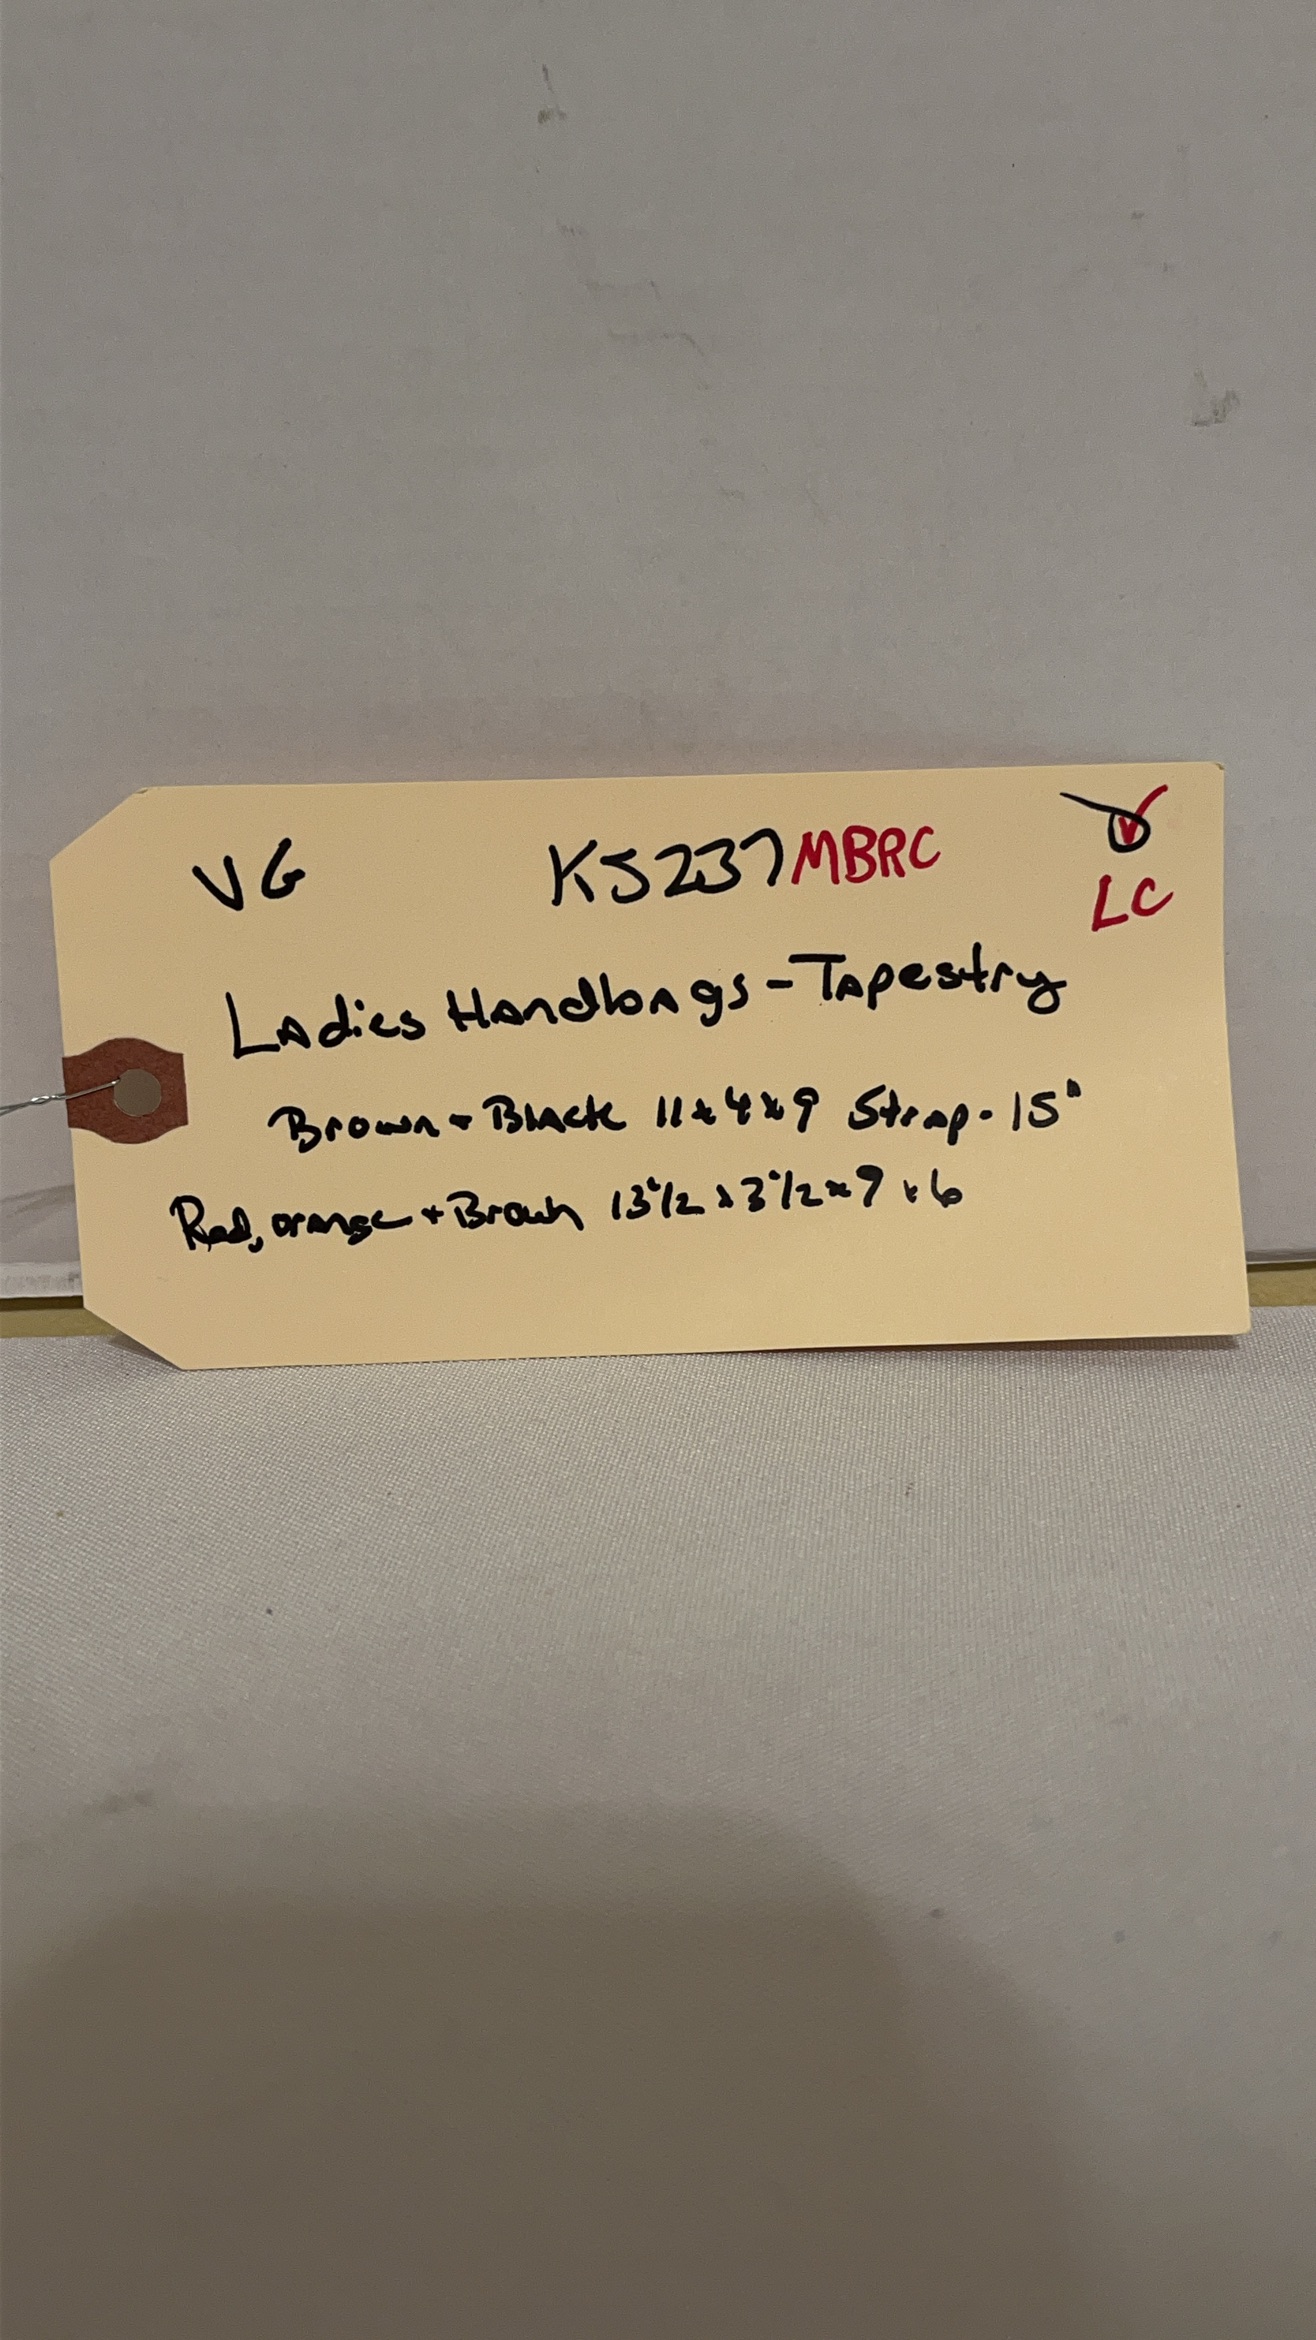 VG KS237MBRC
LC
Ladies Handbags - Tapestry
Brown + Black 11 x 4 x 9 Strap - 15"
Red, orange + Brown 13 1/2 x 3 1/2 x 9 x 6